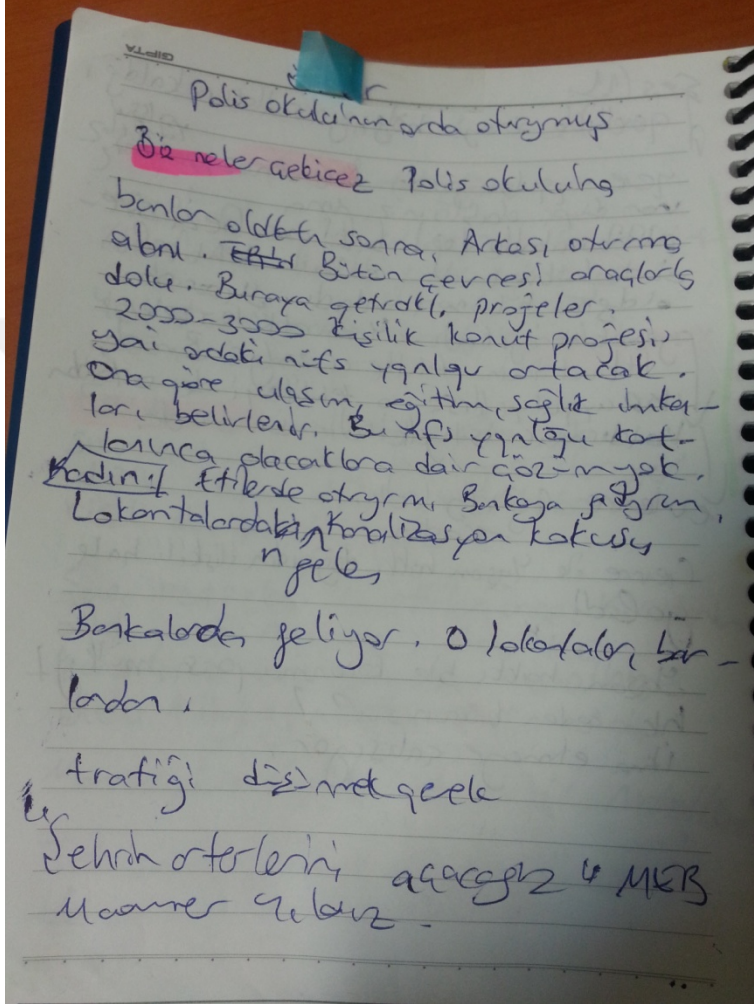 GIPTA
Polis okulunun orda oturuymuş
Biz neler çekicez Polis okuluna
bunlar oldktn sonra. Arkası oturma
alanı. Bütün çevresi araçlarla
dolu. Buraya getrdkl. projeler.
2000-3000 kişilik konut projesi,
yai ordaki nüfs yğnlğu artacak.
Ona göre ulaşım, eğitim, sağlık imka-
ları belirlenir. Bu nfs yğnlğu kat-
larınca olacaklara dair çözüm yok.
Kadın: Etilerde otryrm. Bankaya
Lokantalardakin Kanalizasyon kokusu
Bankalardan geliyor. O lokantalar, bar-
lardan.
trafiği düşünmek gerek
Şehrin arterlerini açacağız MEB
Muammer